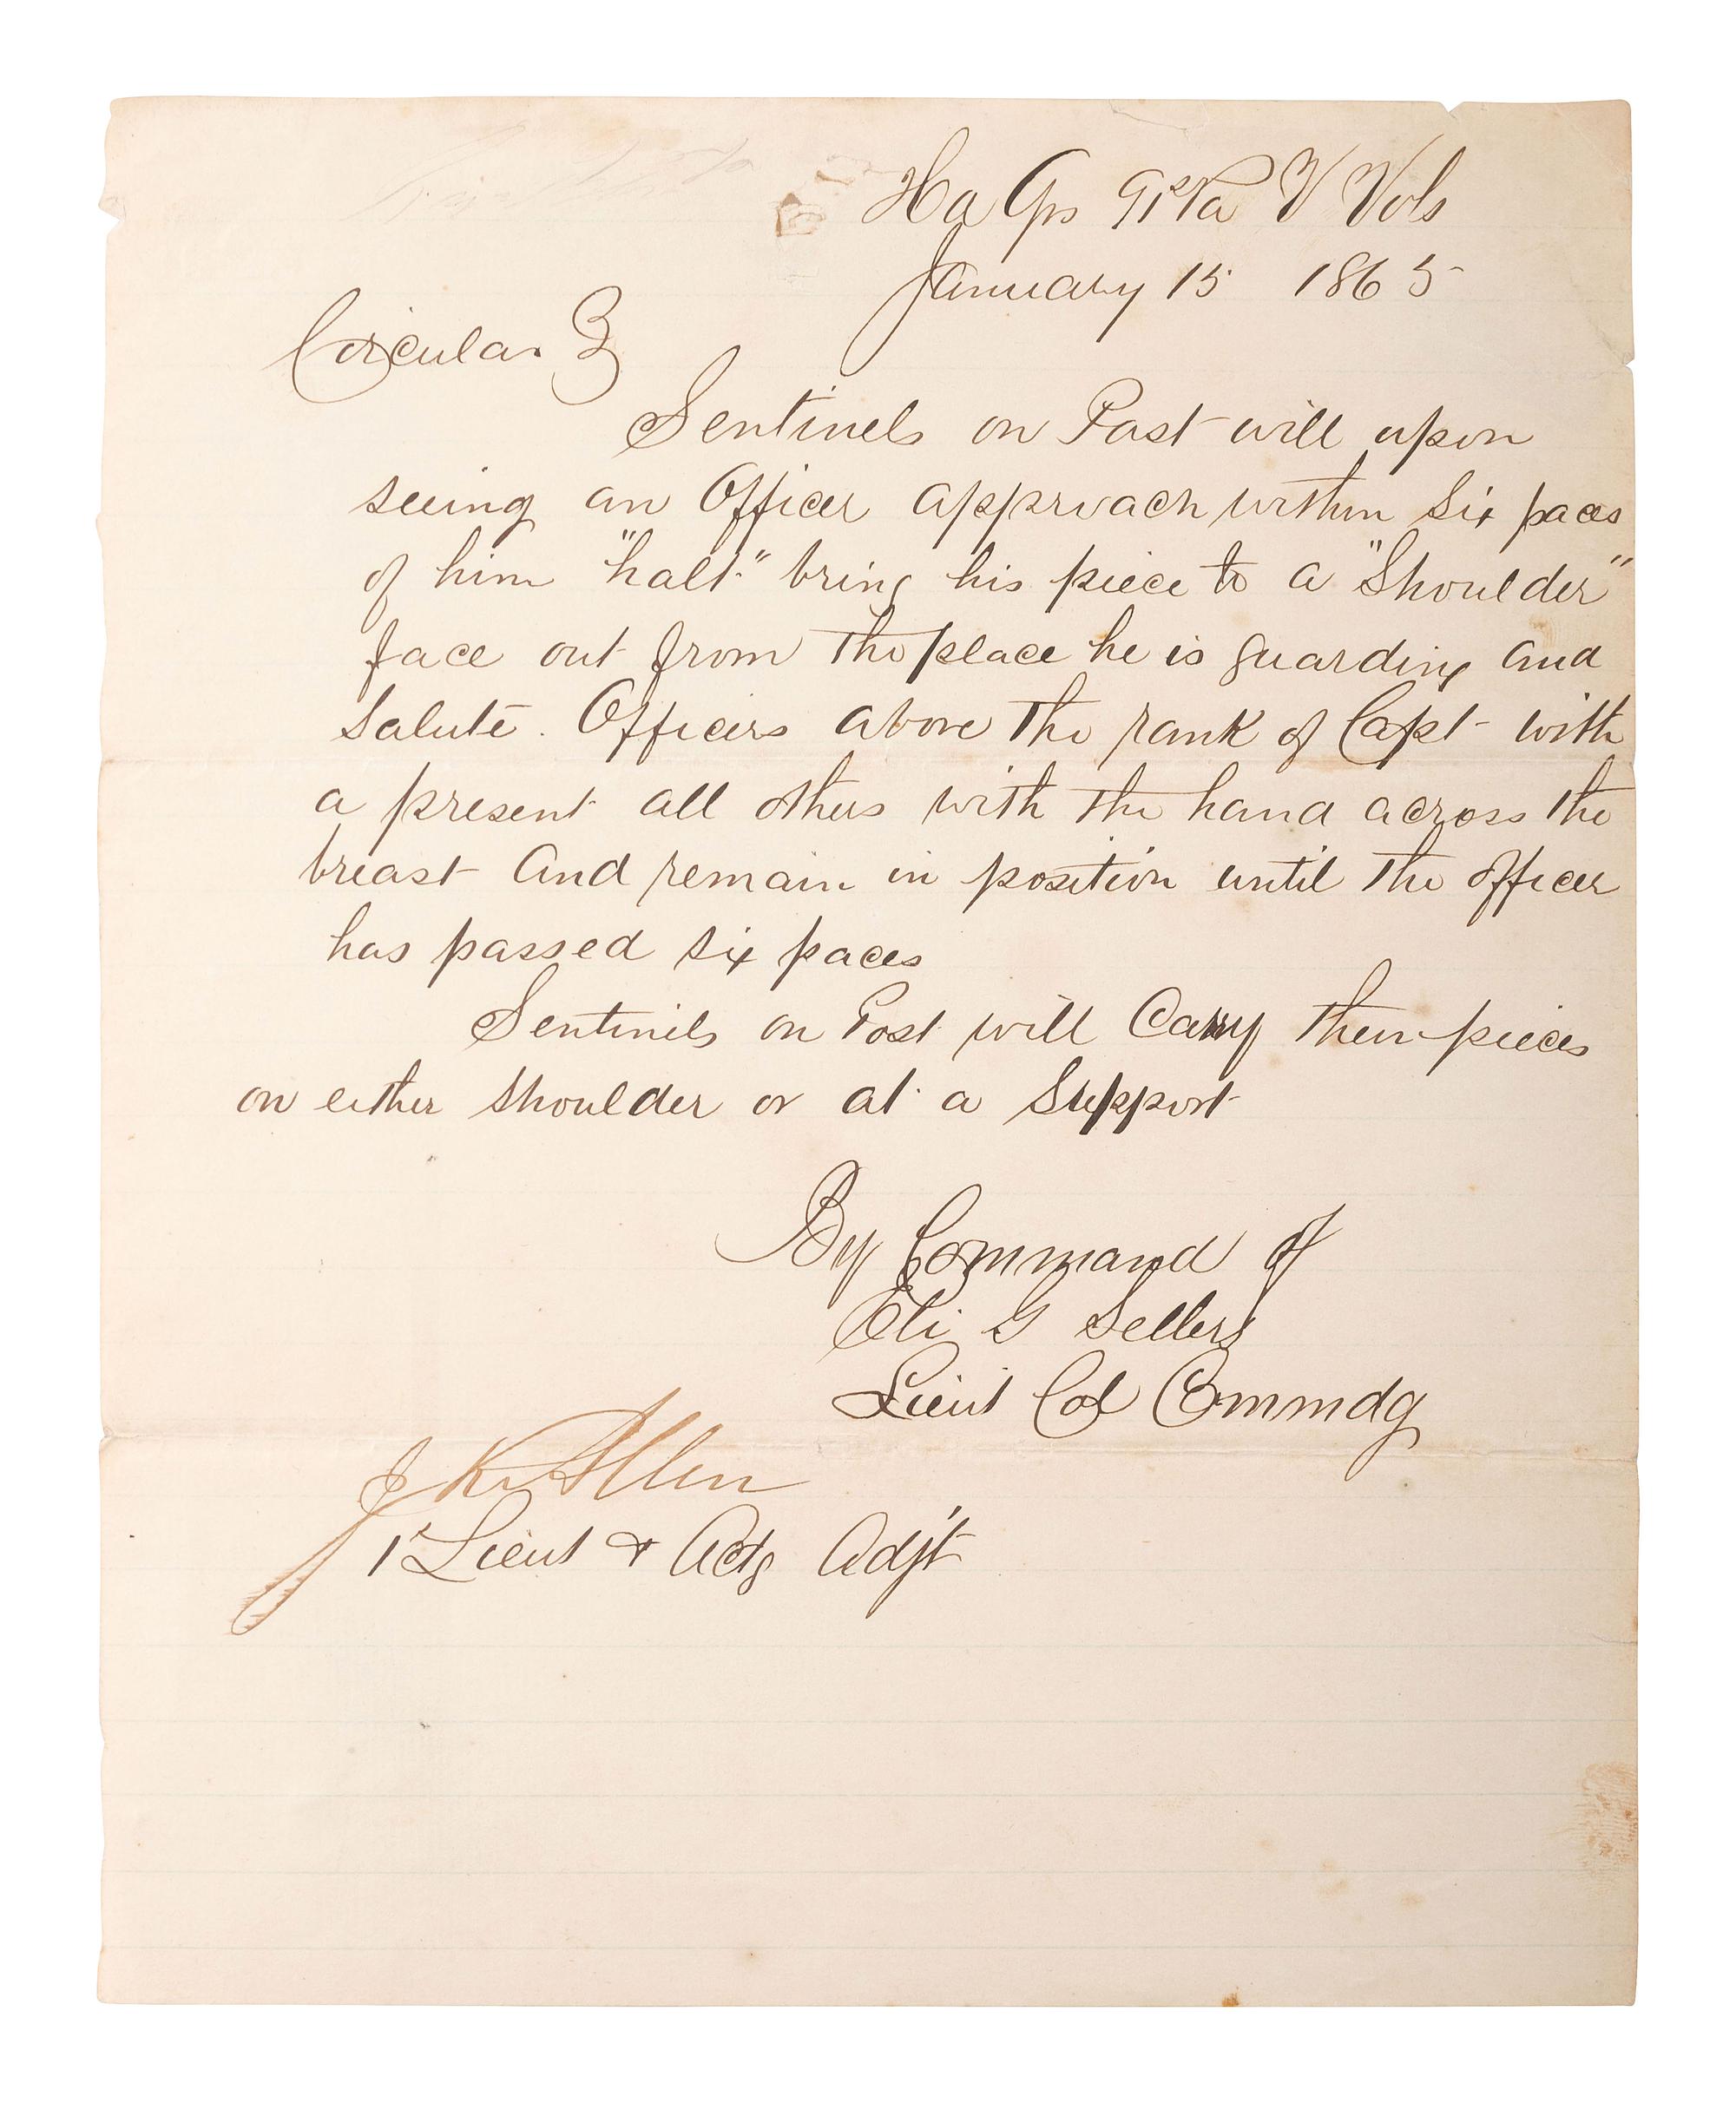 Hd Qrs 91 Pa V Vols
January 15 1865
Circular 3
Sentinels on Post will upon
seeing an Officer approach within Six paces
of him "halt" bring his piece to a "Shoulder"
face out from the place he is guarding and
Salute. Officers above the rank of Capt with
a present all others with the hand across the
breast and remain in position until the officer
has passed six paces
Sentinels on Post will Carry their pieces
on either Shoulder or at a Support
By Command of
Eli G Sellers
Lieut Col Commdg
J K Allen
1st Lieut & Actg Adjt